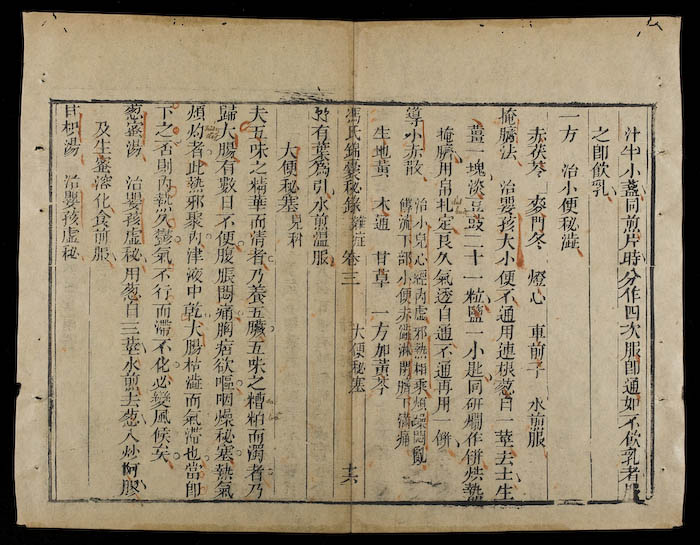 汁半小盞同煎片時分作四次服卽通如不飲乳者服
之卽飲乳
一方　治小便秘澁
赤茯苓　麥門冬　燈心　車前子　水煎服
掩臍法　治嬰孩大小便不通用連根葱白一莖去土生
薑一塊淡豆豉二十一粒鹽一小匙同研爛作餅烘熱
掩臍用帛札定良久氣透自通不通再用一餅
導小赤散　治小兒心經內虛邪熱相乘煩燥悶亂
傳流下部小便赤澁淋閉臍下滿痛
生地黃　木通　甘草　一方加黃芩
馮氏錦囊秘錄　雜症　卷三　大便秘塞　十六
有葉為引水煎溫服
大便秘塞兒科
夫五味之精華而清者乃養五臟五味之糟粕而濁者乃
歸大腸有數日不便腹脹悶痛胸痞欲嘔咽燥秘塞熱氣
煩灼者此熱邪聚內津液中乾大腸枯澁而氣滯也當卽
下之否則內熱久鬱氣不行而滯不化必變風候矣
葱蜜湯　治嬰孩虛秘用葱白三莖水煎去葱入炒阿膠
及生蜜溶化食前服
甘枳湯　治嬰孩虛秘